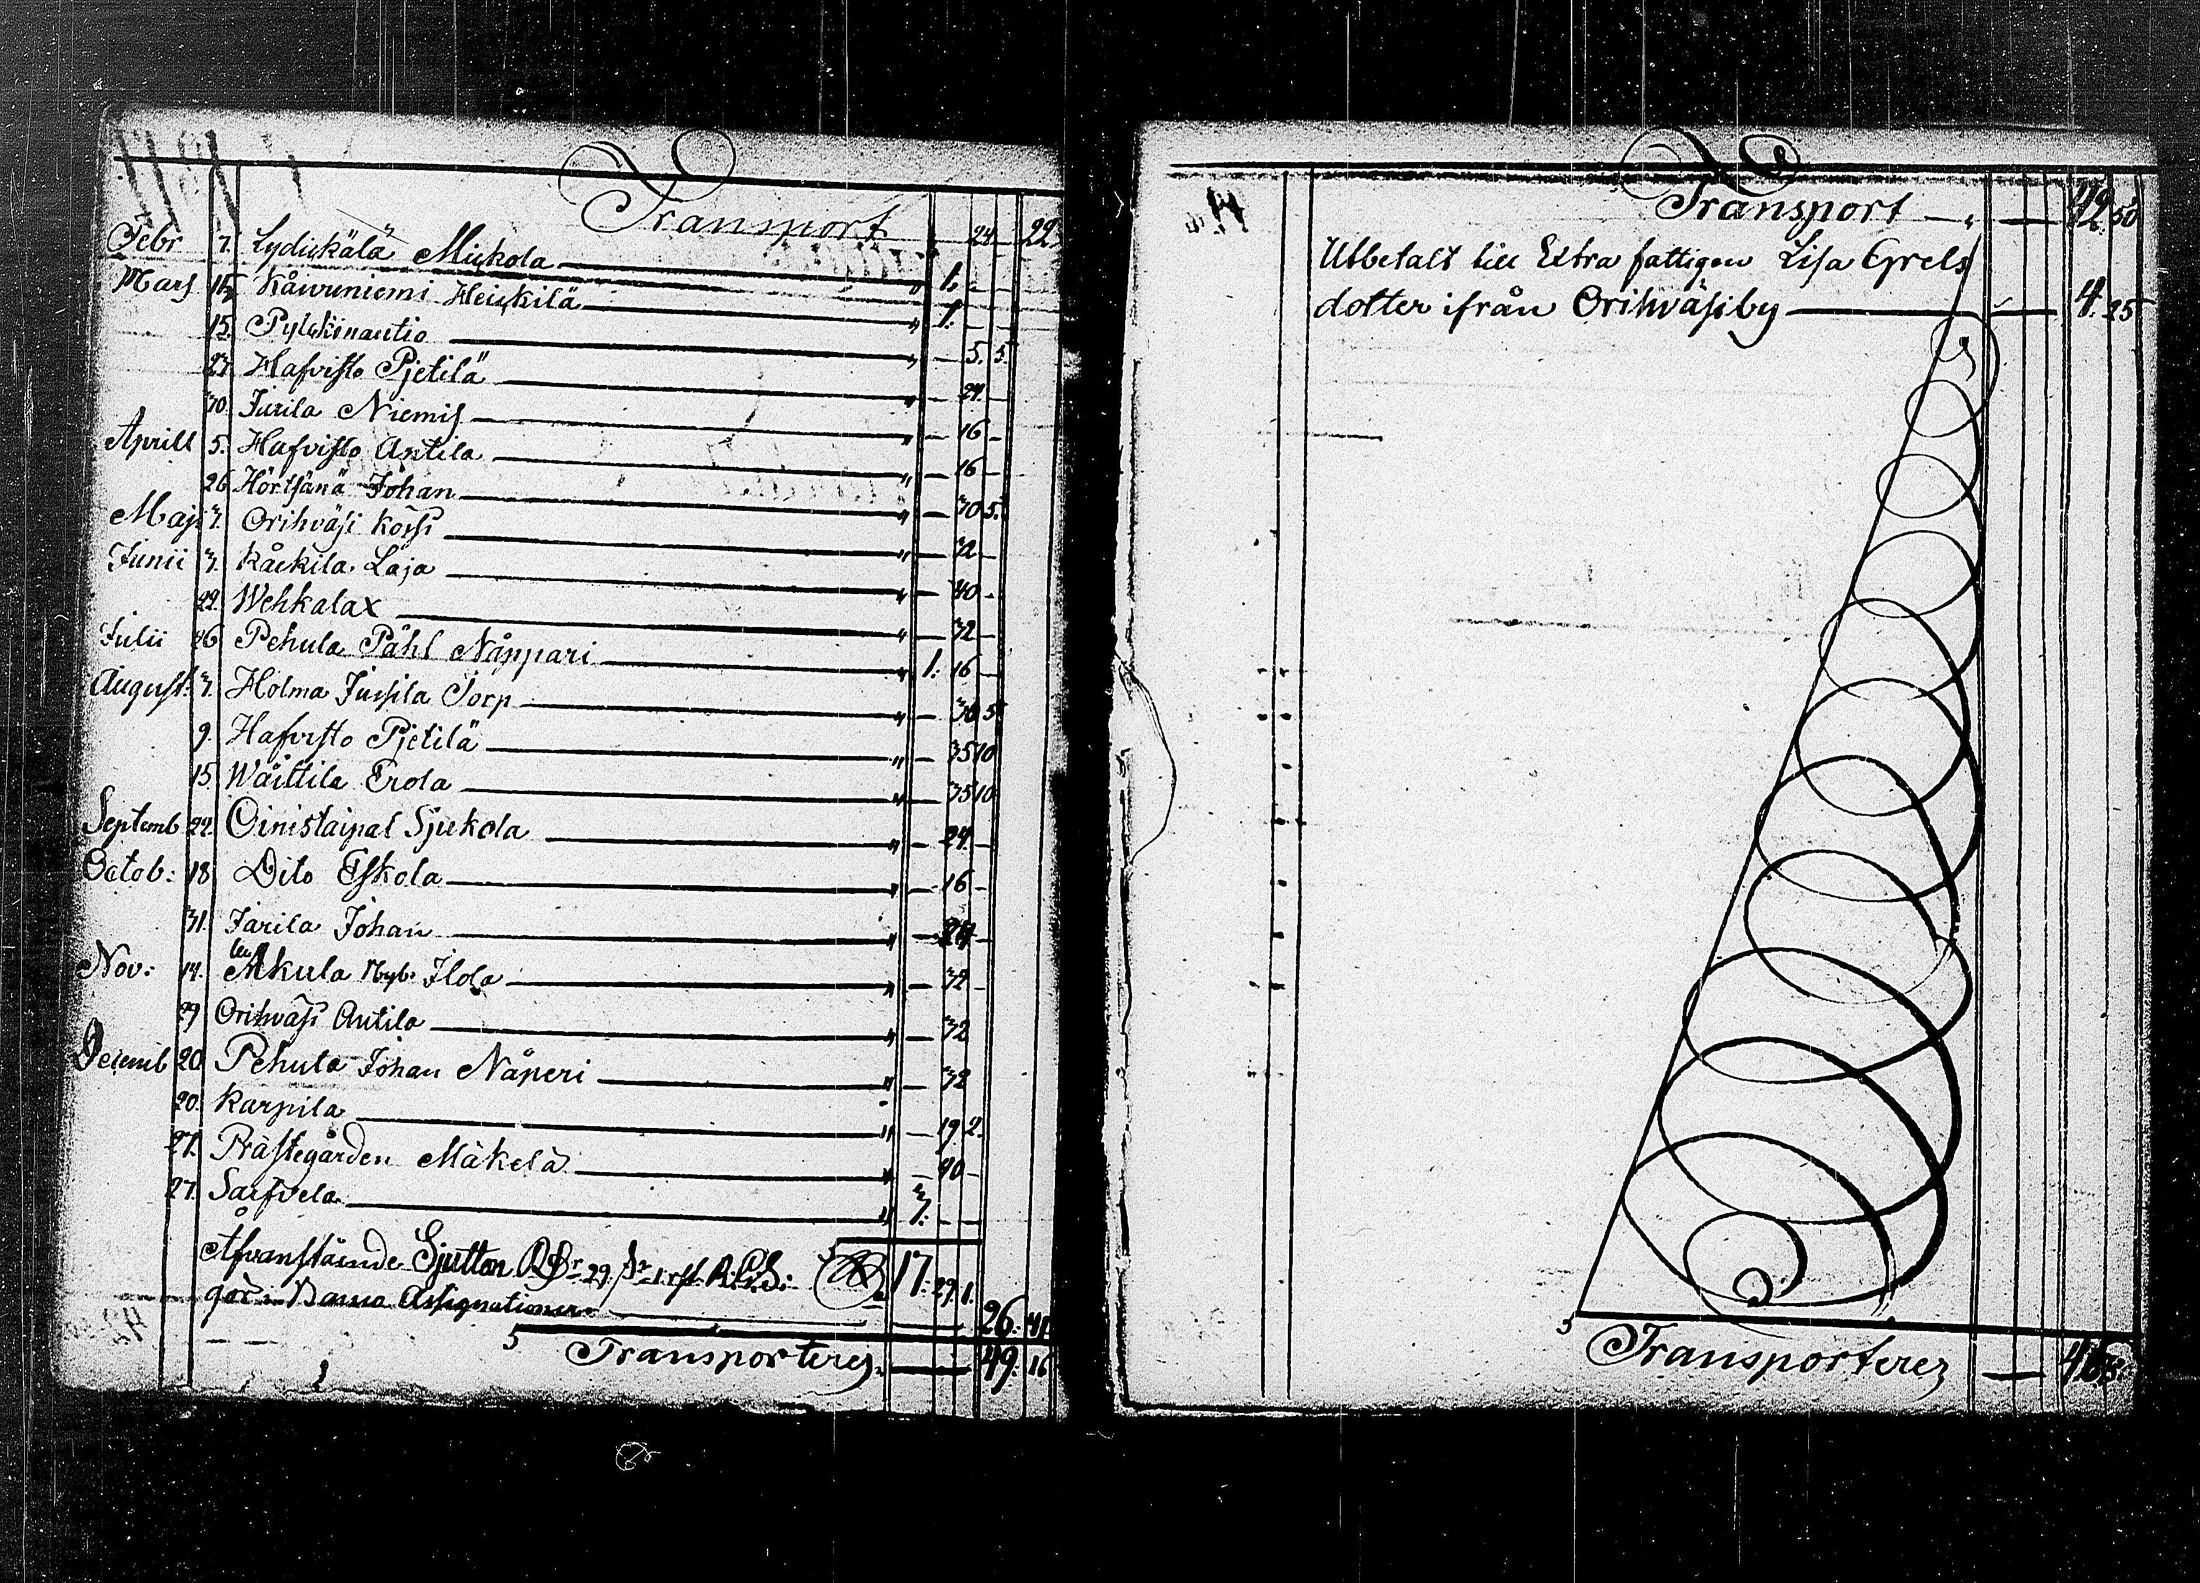 Transport — 24 — 22
Febr 7. Lydickälä Mickola — " 1. — —
Mars 15 Kåwuniemi Heickilä — " 1. — —
15. Pylckinautio — " — 5. 5.
27. Hafvisto Pjetilä — " — 24. —
30. Jurila Niemis — " — 16 —
Aprill 5. Hafvisto Antila — " — 16 —
26 Hörtsänä Johan — " — 30 5.
Maji 3. Orihväsi Körsi — " — 32 —
Junii 3. Kåckila Laja — " — 40 —
22. Wehkalax — " — 32 —
Julii 26 Pehula Påhl Nåppari — " 1. 16 —
August: 3. Holma Jussila Torp — " — 36 5
9. Hafvisto Pjetilä — " — 35 10
15 Wåittila Erola — " — 35 10
Septemb 22. Oinistaipal Sjukola — " — 24. —
Octob: 18 Dito Eskola — " — 16 —
31. Jarila Johan — " — 24 —
Nov: 14. Akula Nyb: Ilola — " — 32 —
29 Orihväsi Antila — " — 32
Decemb 20 Pehula Johan Nåperi — " — 32
20. Karpila — " — 19 2.
27. Prästegården Mäkelä — " — 40 —
27. Sarfvela — " 3. — —
Åfvanstäinde Sjutton RDr 29. s 1 rst R.G.S: 17. 29. 1.
gör i Banco Assignationer — 26. 41
Transporteres — 49. 16
Transport — " — 42 50
Utbetalt till Extra fattigen Lisa Grels
dotter ifrån Orihväsiby — 4. 25
Transporterez — 46